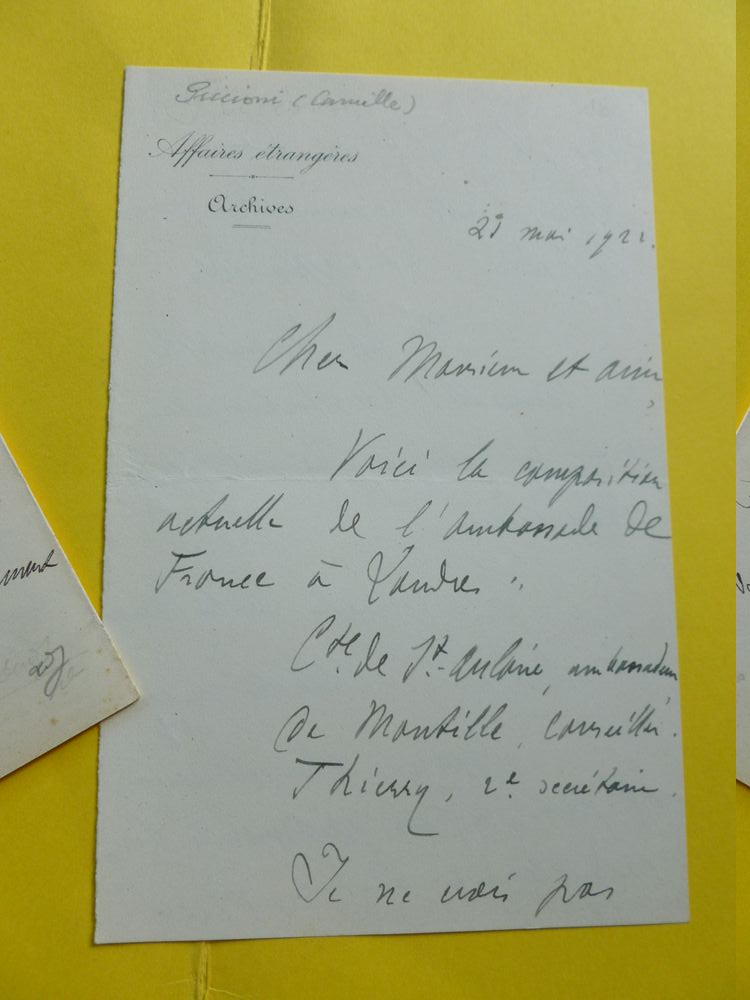 Piccioni (Camille)
Affaires étrangères
Archives
mai 192
Cher Monsieur et ami,
Voici la composition
actuelle de l'ambassade de
France à Londres :
Cte de St-Aulaire, ambassadeur
de Montille, conseiller.
Thierry, 2e secrétaire.
Je ne vois pas